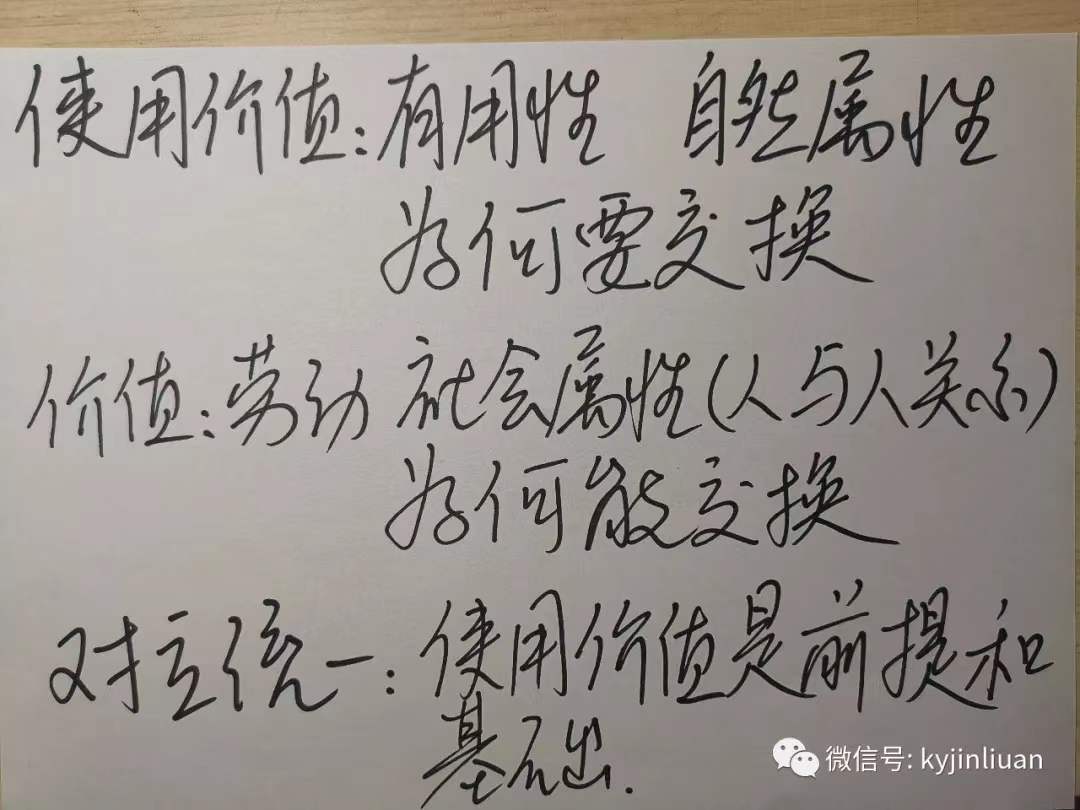 使用价值:有用性 自然属性
为何要交换
价值:劳动 社会属性(人与人关系)
为何能交换
对立统一:使用价值是前提和
基础.
微信号: kyjinliuan